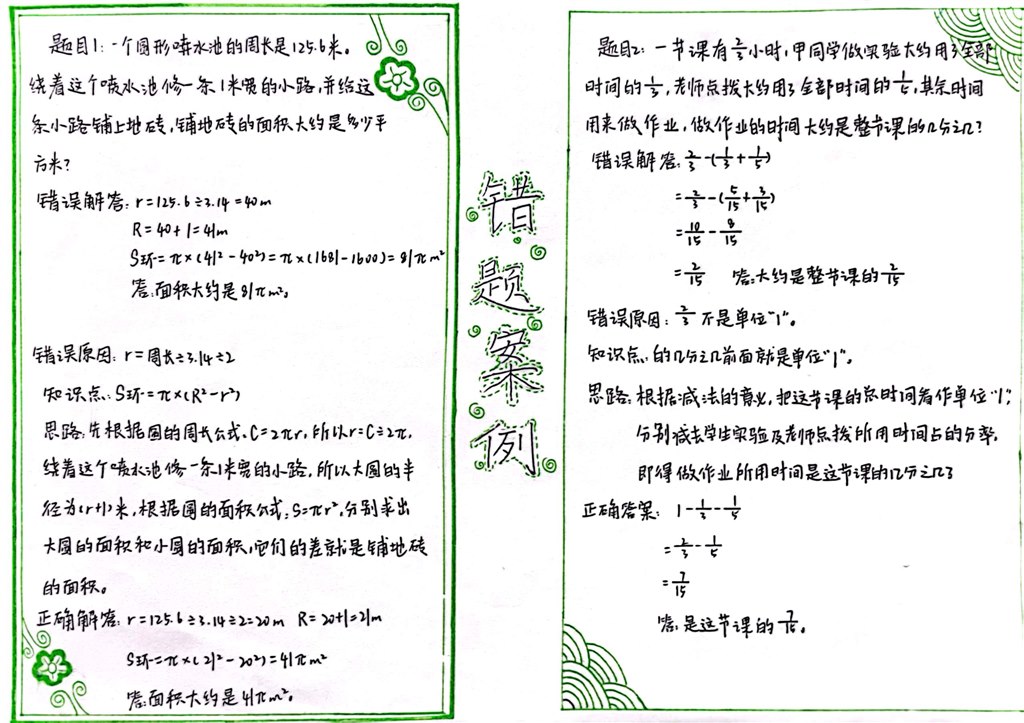 题目1:一个圆形喷水池的周长是125.6米。
绕着这个喷水池修一条1米宽的小路,并给这
条小路铺上地砖,铺地砖的面积大约是多少平
方米?
错误解答:r=125.6÷3.14=40m
R=40+1=41m
S环=π×(41²-40²)=π×(1681-1600)=81πm²
答:面积大约是81πm²。
错误原因:r=周长÷3.14÷2
知识点:S环=π×(R²-r²)
思路:先根据圆的周长公式:C=2πr,所以r=C÷2π,
绕着这个喷水池修一条1米宽的小路,所以大圆的半
径为(r+1)米,根据圆的面积公式:S=πr²,分别求出
大圆的面积和小圆的面积,它们的差就是铺地砖
的面积。
正确解答:r=125.6÷3.14÷2=20m R=20+1=21m
S环=π×(21²-20²)=41πm²
答:面积大约是41πm²。
错
题
案
例
题目2:一节课有2/3小时,甲同学做实验大约用了全部
时间的1/3,老师点拨大约用了全部时间的1/5,其余时间
用来做作业,做作业的时间大约是整节课的几分之几?
错误解答:2/3-(1/3+1/5)
=2/3-(5/15+3/15)
=10/15-8/15
=2/15 答:大约是整节课的2/15
错误原因:2/3不是单位"1"。
知识点:的几分之几前面就是单位"1"。
思路:根据减法的意义,把这节课的总时间看作单位"1",
分别减去学生实验及老师点拨所用时间占的分率,
即得做作业所用时间是这节课的几分之几了
正确答案:1-1/3-1/5
=2/3-1/5
=7/15
答:是这节课的7/15。